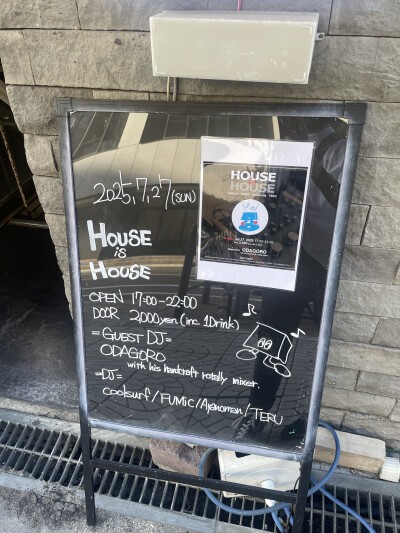 2025,7,27(SUN)
HOUSE
is
HOUSE
OPEN 17:00-22:00
DOOR 2000yen.(inc.1Drink)
=GUEST DJ=
ODAGORO
with his handcraft rotally mixer.
=DJ=
coolsurf/FUMic/Ajenoman/TERU
HOUSE
HOUSE
ODAGORO